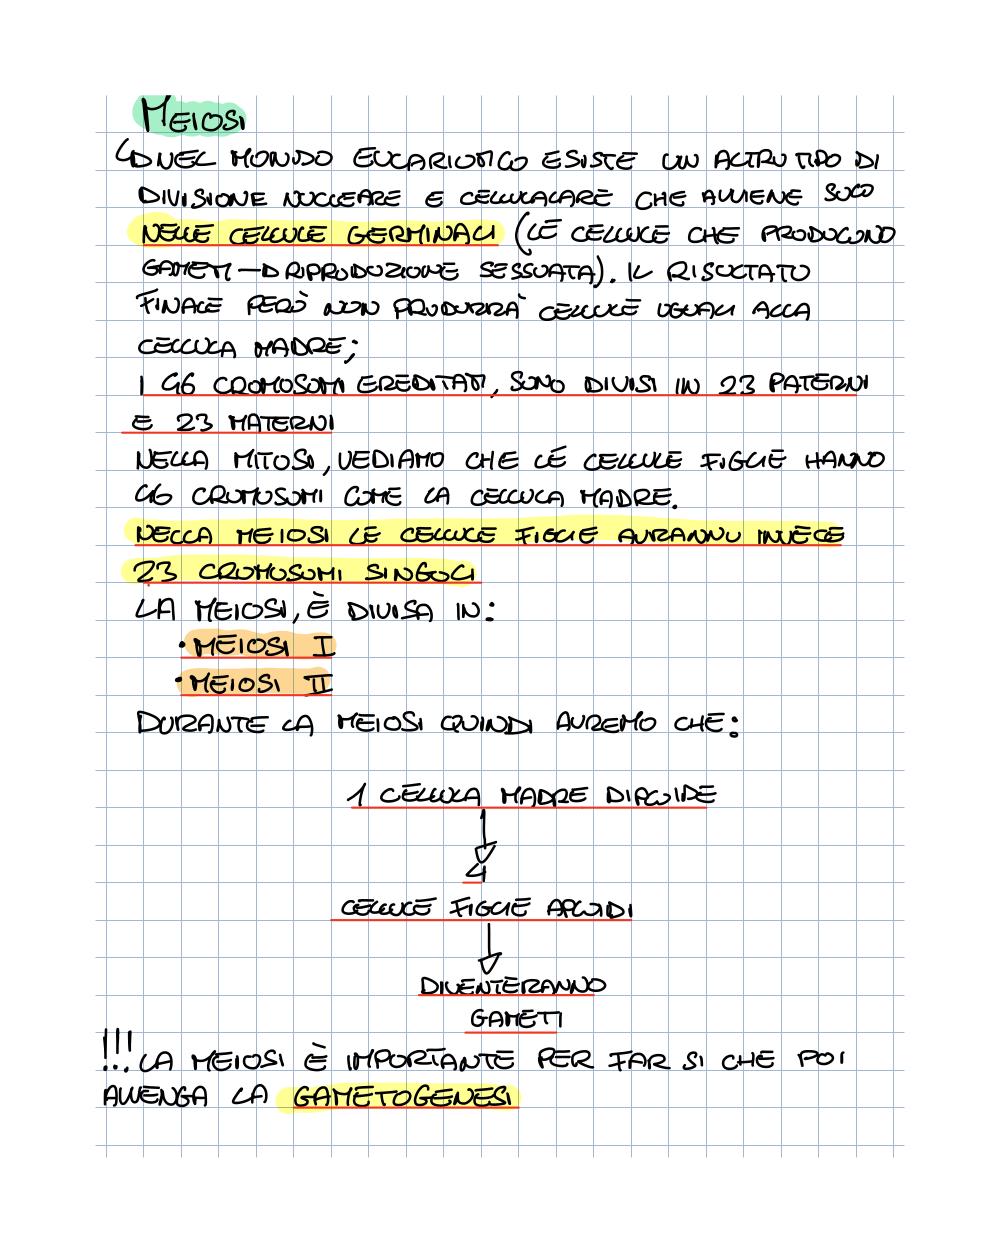 MEIOSI
↳ NEL MONDO EUCARIOTICO ESISTE UN ALTRO TIPO DI
DIVISIONE NUCLEARE E CELLULALARE CHE AVVIENE SOLO
NELLE CELLULE GERMINALI (LE CELLULE CHE PRODUCONO
GAMETI → RIPRODUZIONE SESSUATA). IL RISULTATO
FINALE PERÒ NON PRODURRÀ CELLULE UGUALI ALLA
CELLULA MADRE;
I 46 CROMOSOMI EREDITATI, SONO DIVISI IN 23 PATERNI
E 23 MATERNI
NELLA MITOSI, VEDIAMO CHE LE CELLULE FIGLIE HANNO
46 CROMOSOMI COME LA CELLULA MADRE.
NELLA MEIOSI LE CELLULE FIGLIE AVRANNO INVECE
23 CROMOSOMI SINGOLI
LA MEIOSI, È DIVISA IN:
• MEIOSI I
• MEIOSI II
DURANTE LA MEIOSI QUINDI AVREMO CHE:
1 CELLULA MADRE DIPLOIDE
↓
4
CELLULE FIGLIE APLOIDI
↓
DIVENTERANNO
GAMETI
!!! LA MEIOSI È IMPORTANTE PER FAR SI CHE POI
AVVENGA LA GAMETOGENESI